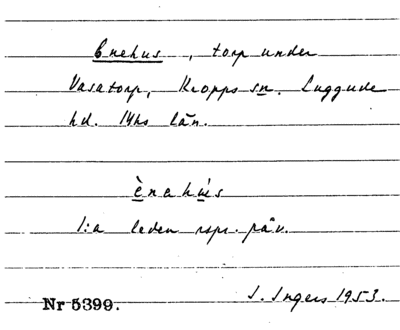 Enehus, torp under
Vasatorp, Kropps sn. Luggude
hd. Mhs län.
ènahús
1:a leden
I. Ingers 1953.
Nr 5399.